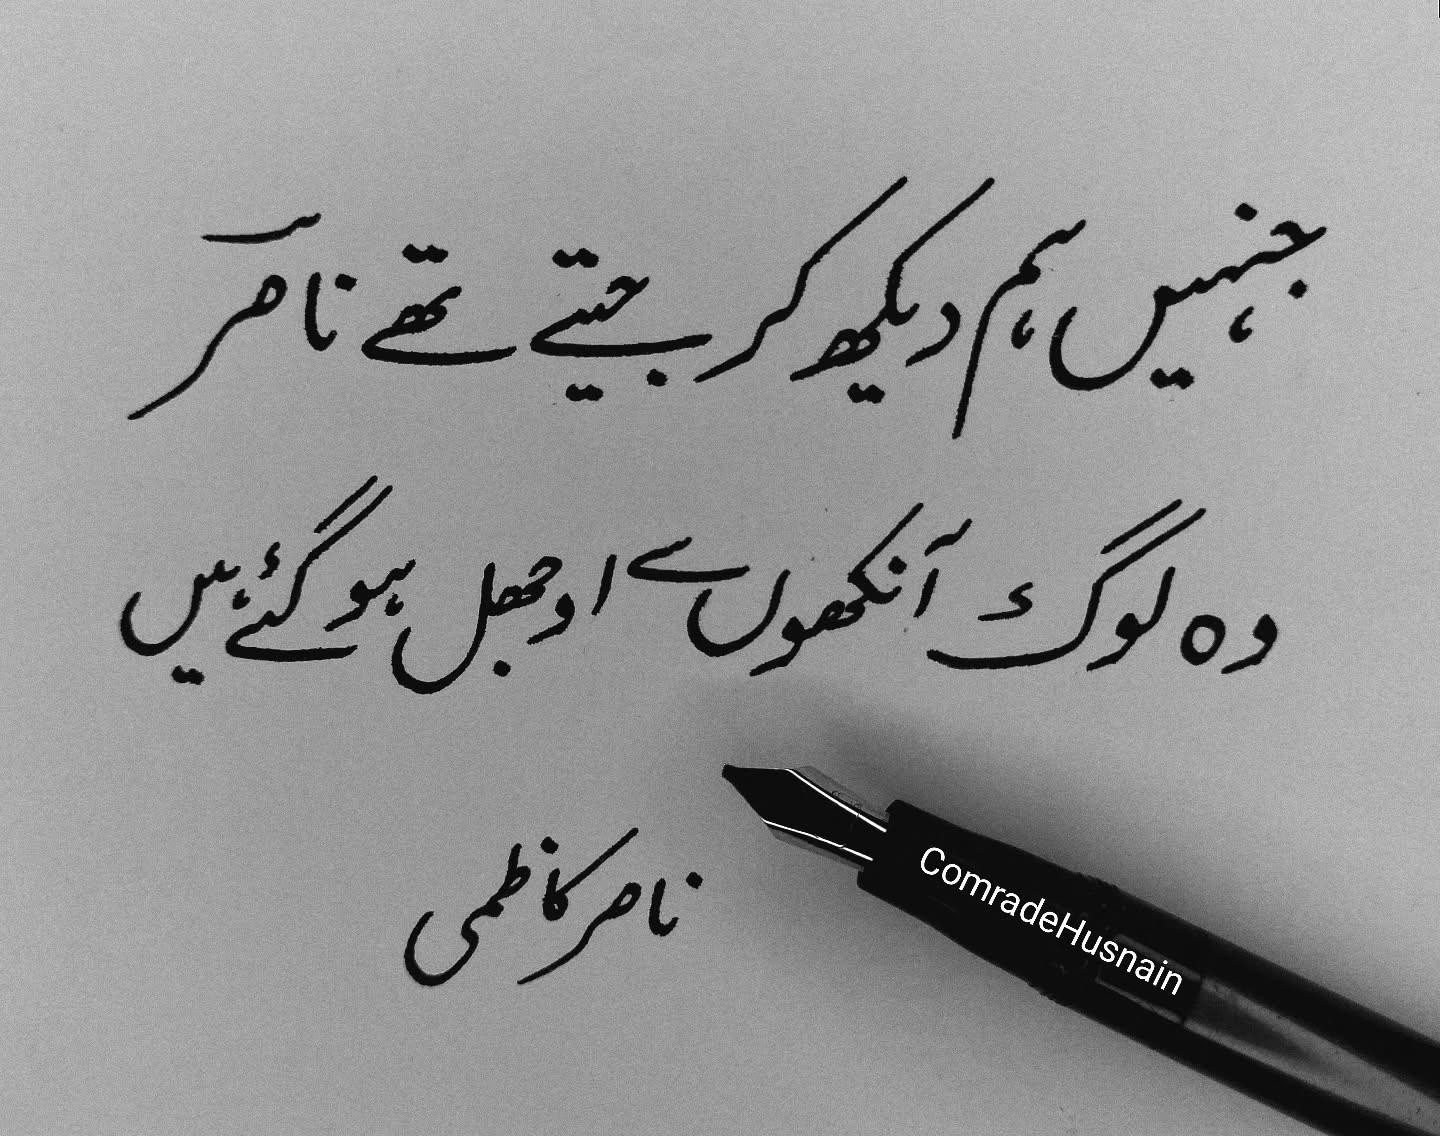 جنہیں ہم دیکھ کر جیتے تھے ناصرؔ
وہ لوگ آنکھوں سے اوجھل ہو گئے ہیں
ناصر کاظمی
ComradeHusnain